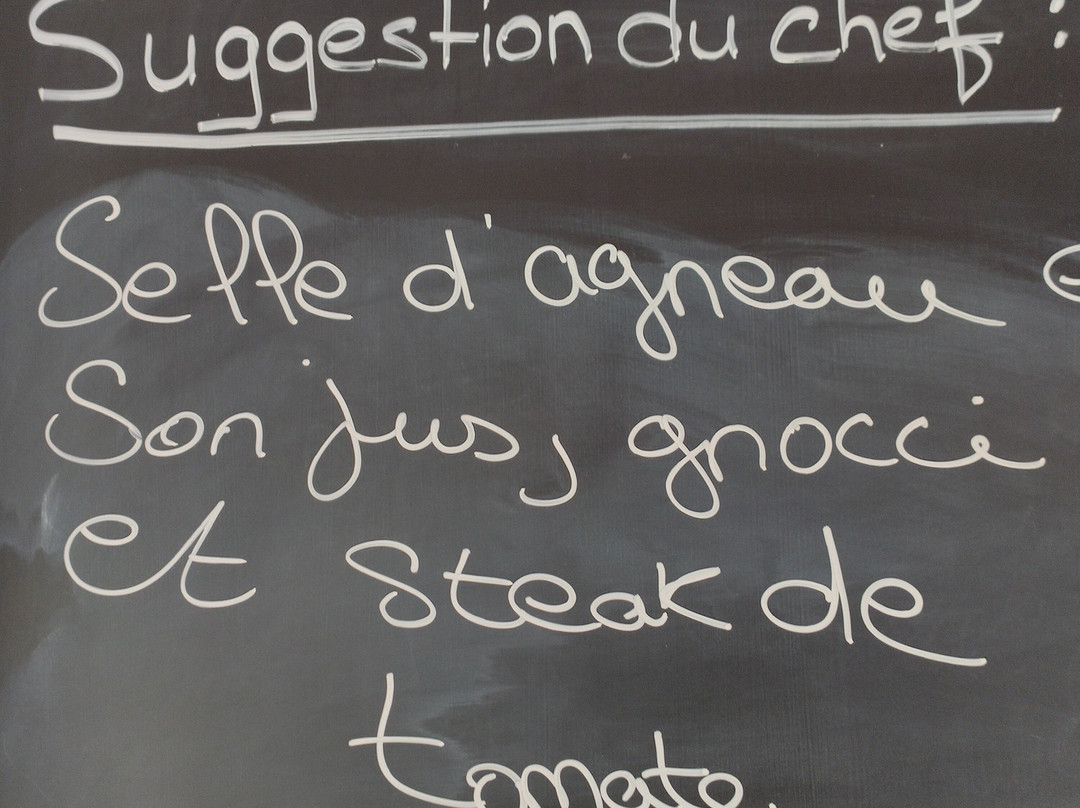 Suggestion du chef :
Selle d'agneau
Son jus, gnocci
et Steak de
tomate.